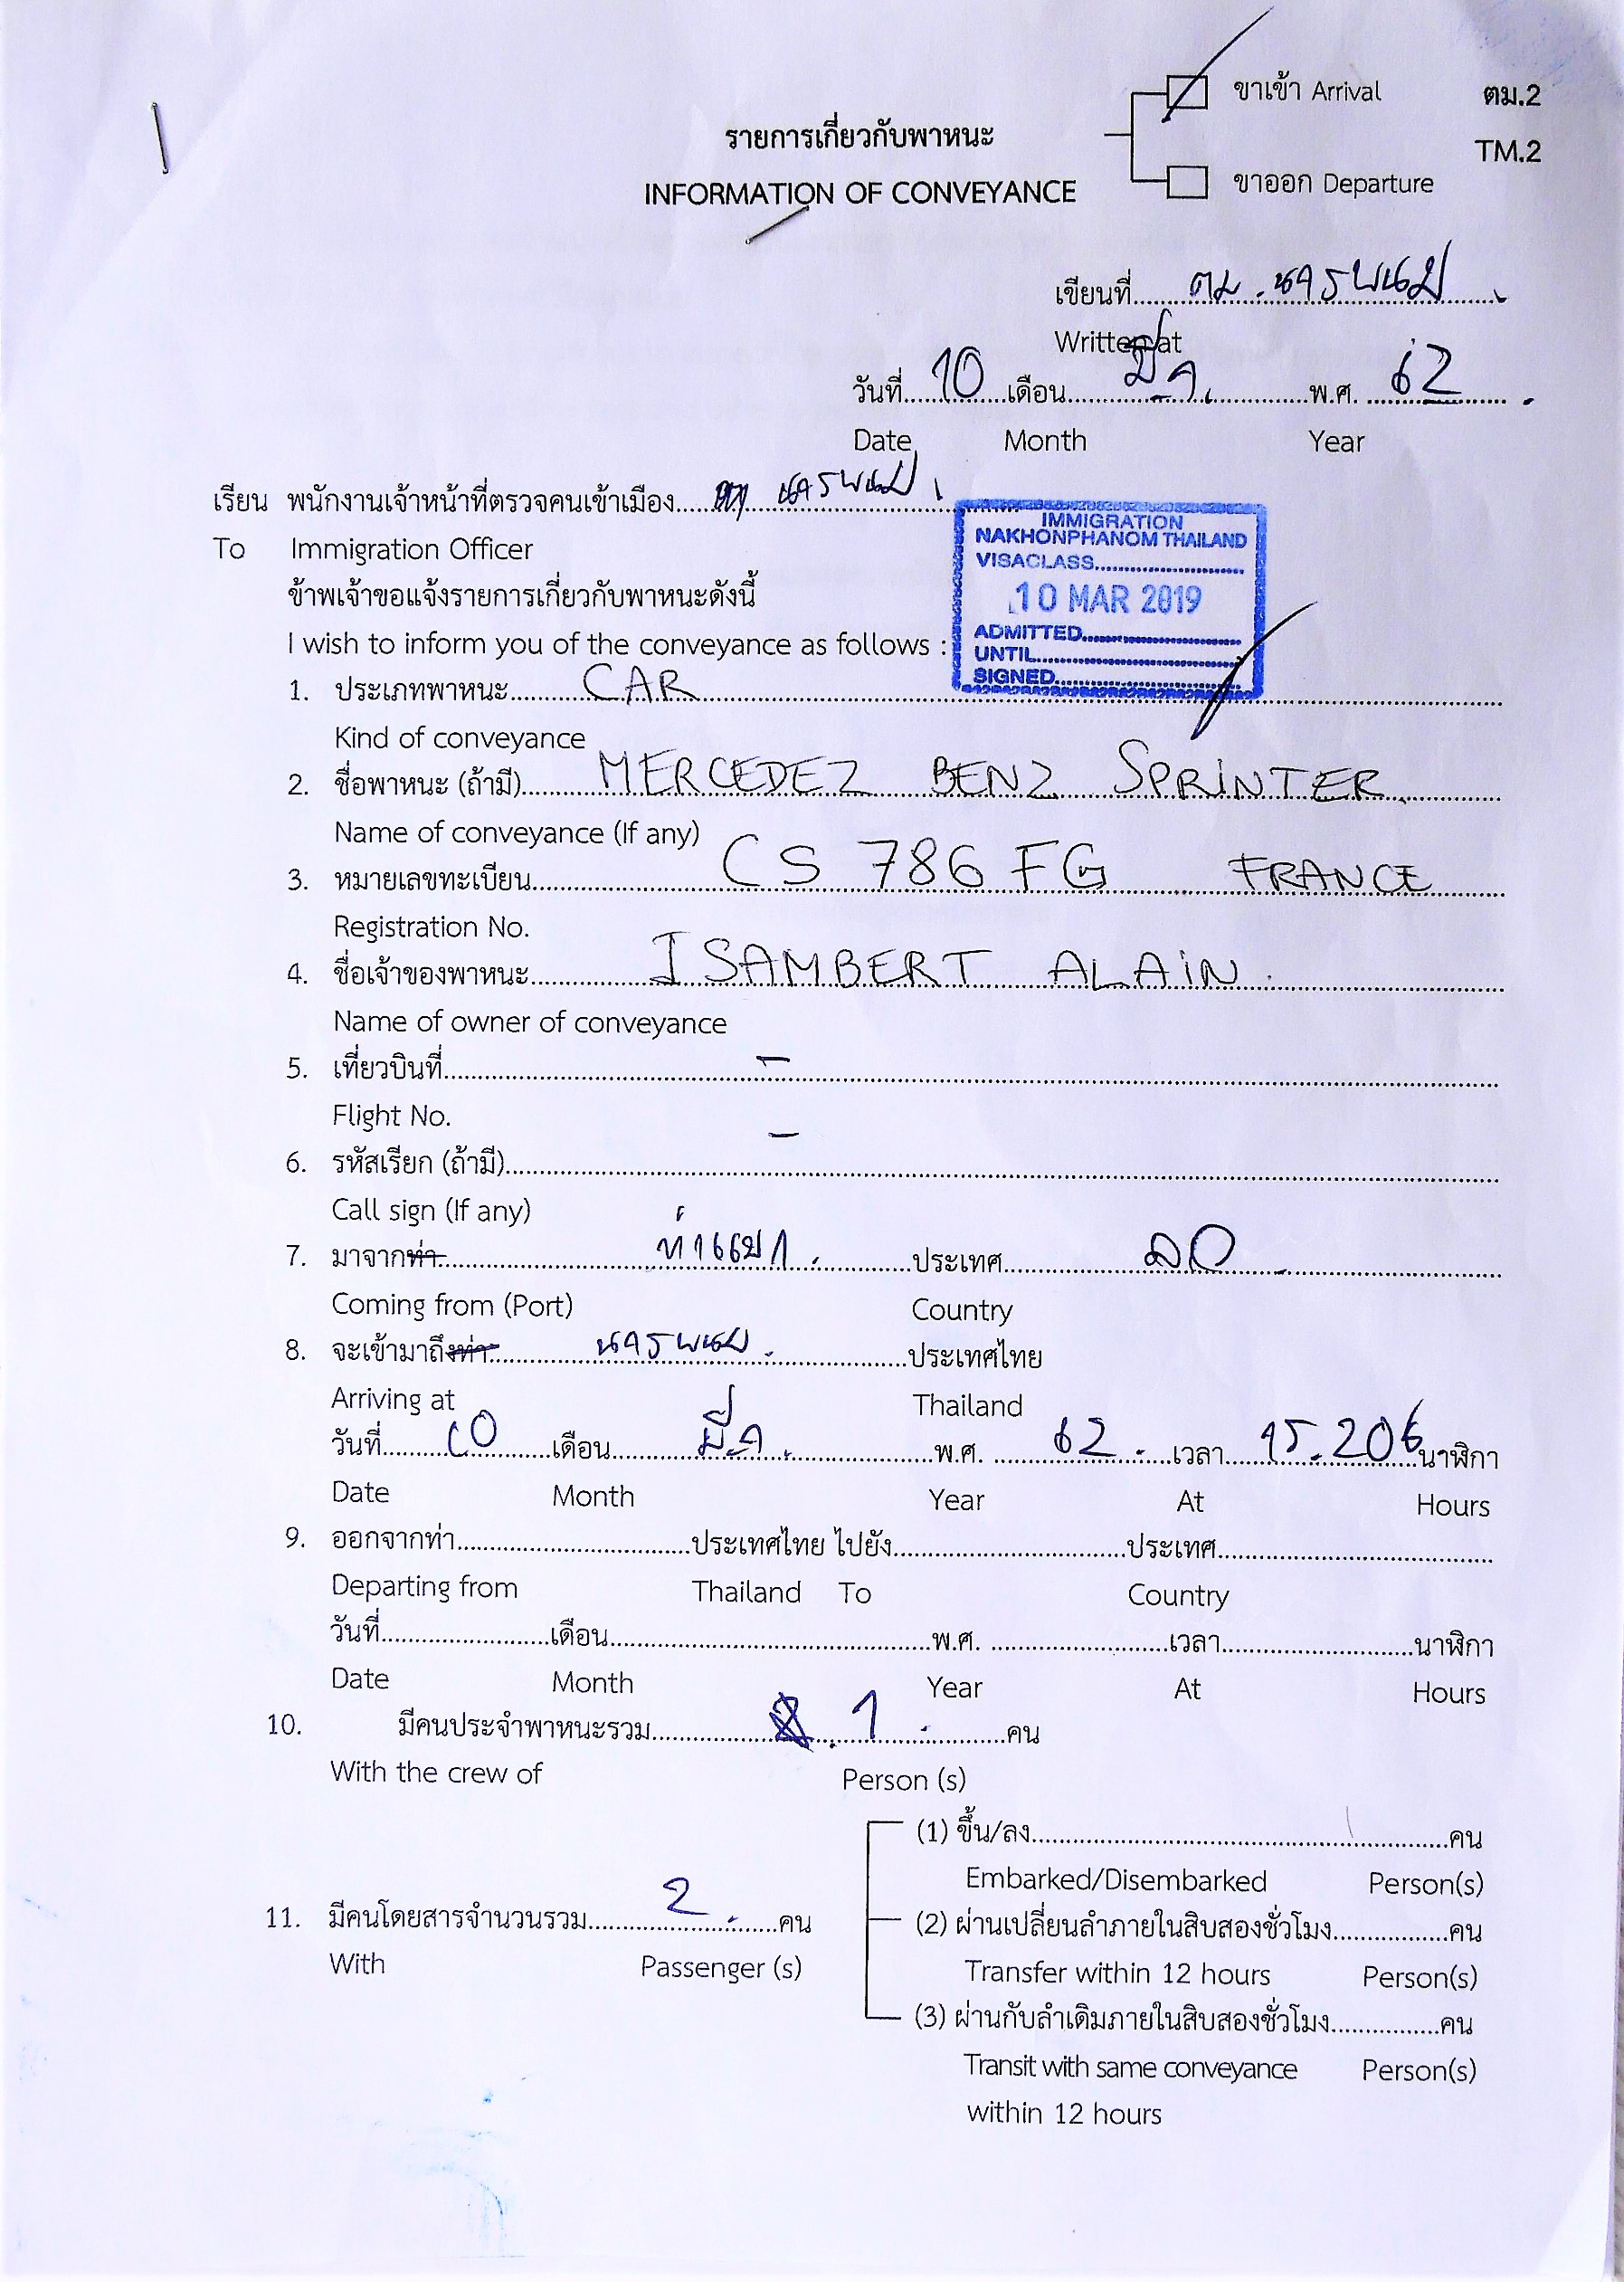 ขาเข้า Arrival ตม.2
รายการเกี่ยวกับพาหนะ TM.2
INFORMATION OF CONVEYANCE ขาออก Departure
เขียนที่ ตม.นครพนม
Written at
วันที่ 10 เดือน มี.ค. พ.ศ. 62
Date Month Year
เรียน พนักงานเจ้าหน้าที่ตรวจคนเข้าเมือง นครพนม
To Immigration Officer
IMMIGRATION
NAKHONPHANOM THAILAND
VISACLASS
10 MAR 2019
ADMITTED
UNTIL
SIGNED
ข้าพเจ้าขอแจ้งรายการเกี่ยวกับพาหนะดังนี้
I wish to inform you of the conveyance as follows :
1. ประเภทพาหนะ CAR
Kind of conveyance
2. ชื่อพาหนะ (ถ้ามี) MERCEDEZ BENZ SPRINTER
Name of conveyance (If any)
3. หมายเลขทะเบียน CS 786 FG FRANCE
Registration No.
4. ชื่อเจ้าของพาหนะ ISAMBERT ALAIN
Name of owner of conveyance
5. เที่ยวบินที่ -
Flight No.
6. รหัสเรียก (ถ้ามี) -
Call sign (If any)
7. มาจากท่า ท่าแขก ประเทศ ลาว
Coming from (Port) Country
8. จะเข้ามาถึงท่า นครพนม ประเทศไทย
Arriving at Thailand
วันที่ 10 เดือน มี.ค. พ.ศ. 62 เวลา นาฬิกา
Date Month Year At Hours
9. ออกจากท่า ประเทศไทย ไปยัง ประเทศ
Departing from Thailand To Country
วันที่ เดือน พ.ศ. เวลา นาฬิกา
Date Month Year At Hours
10. มีคนประจำพาหนะรวม 1 คน
With the crew of Person (s)
(1) ขึ้น/ลง คน
Embarked/Disembarked Person(s)
11. มีคนโดยสารจำนวนรวม 2 คน (2) ผ่านเปลี่ยนลำภายในสิบสองชั่วโมง คน
With Passenger (s) Transfer within 12 hours Person(s)
(3) ผ่านกับลำเดิมภายในสิบสองชั่วโมง คน
Transit with same conveyance Person(s)
within 12 hours